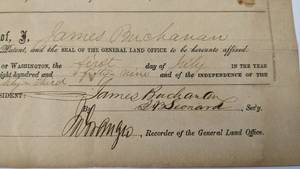 of, I, James Buchanan
Patent, and the SEAL OF THE GENERAL LAND OFFICE to be hereunto affixed.
OF WASHINGTON, the first day of July IN THE YEAR
ight hundred and fifty nine AND OF THE INDEPENDENCE OF THE
third
SIDENT: James Buchanan
Leonard, Sec'y.
Recorder of the General Land Office.